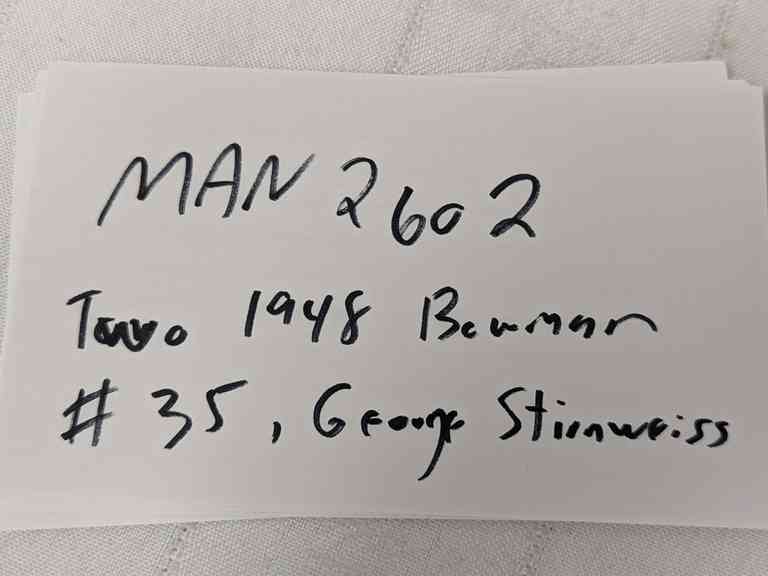 MAN 2602
Two 1948 Bowman
# 35, George Stirnweiss